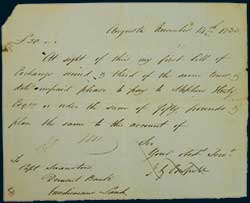 Augusta November 14th 1832
£50 . .
At sight of this my first bill of
Exchange second & third of the same tenor &
date unpaid please to pay to Stephen
or order the sum of fifty pounds &
place the same to the account of
Sir
Your Obt. Servt.
To
Capt. Swanston
Derwent Bank
Vandiemans Land